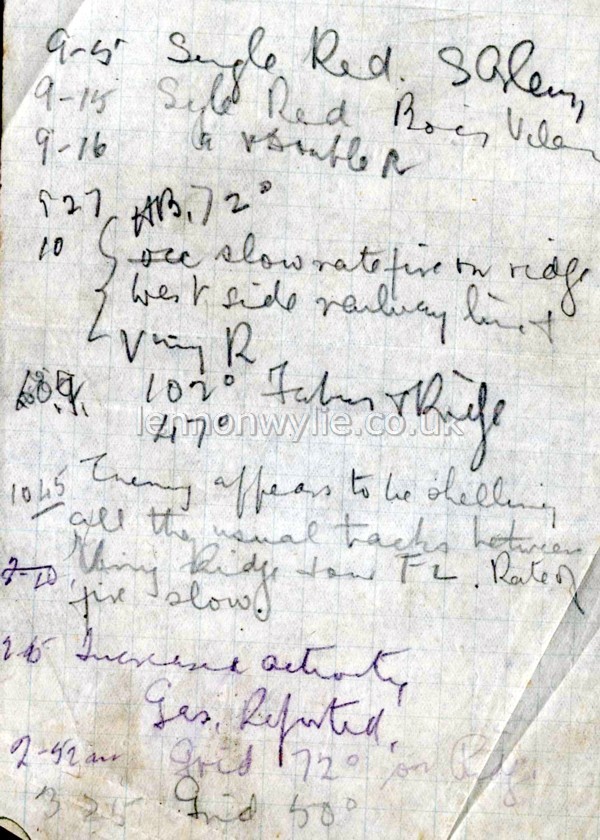 9-5 Single Red. S
9-15 Red Bois
9-16 & Double R
9 27 AB. 72°
10 occ slow rate fire on ridge
West side railway line +
Vimy R
102° Ridge
47°
lennonwylie.co.uk
10 45 Enemy appears to be shelling
all the usual tracks between
Vimy Ridge + our F L. Rate of
fire slow.
Increased activity,
Gas. Reported.
2-52 am Grid 72° on
3 25 Grid 50°